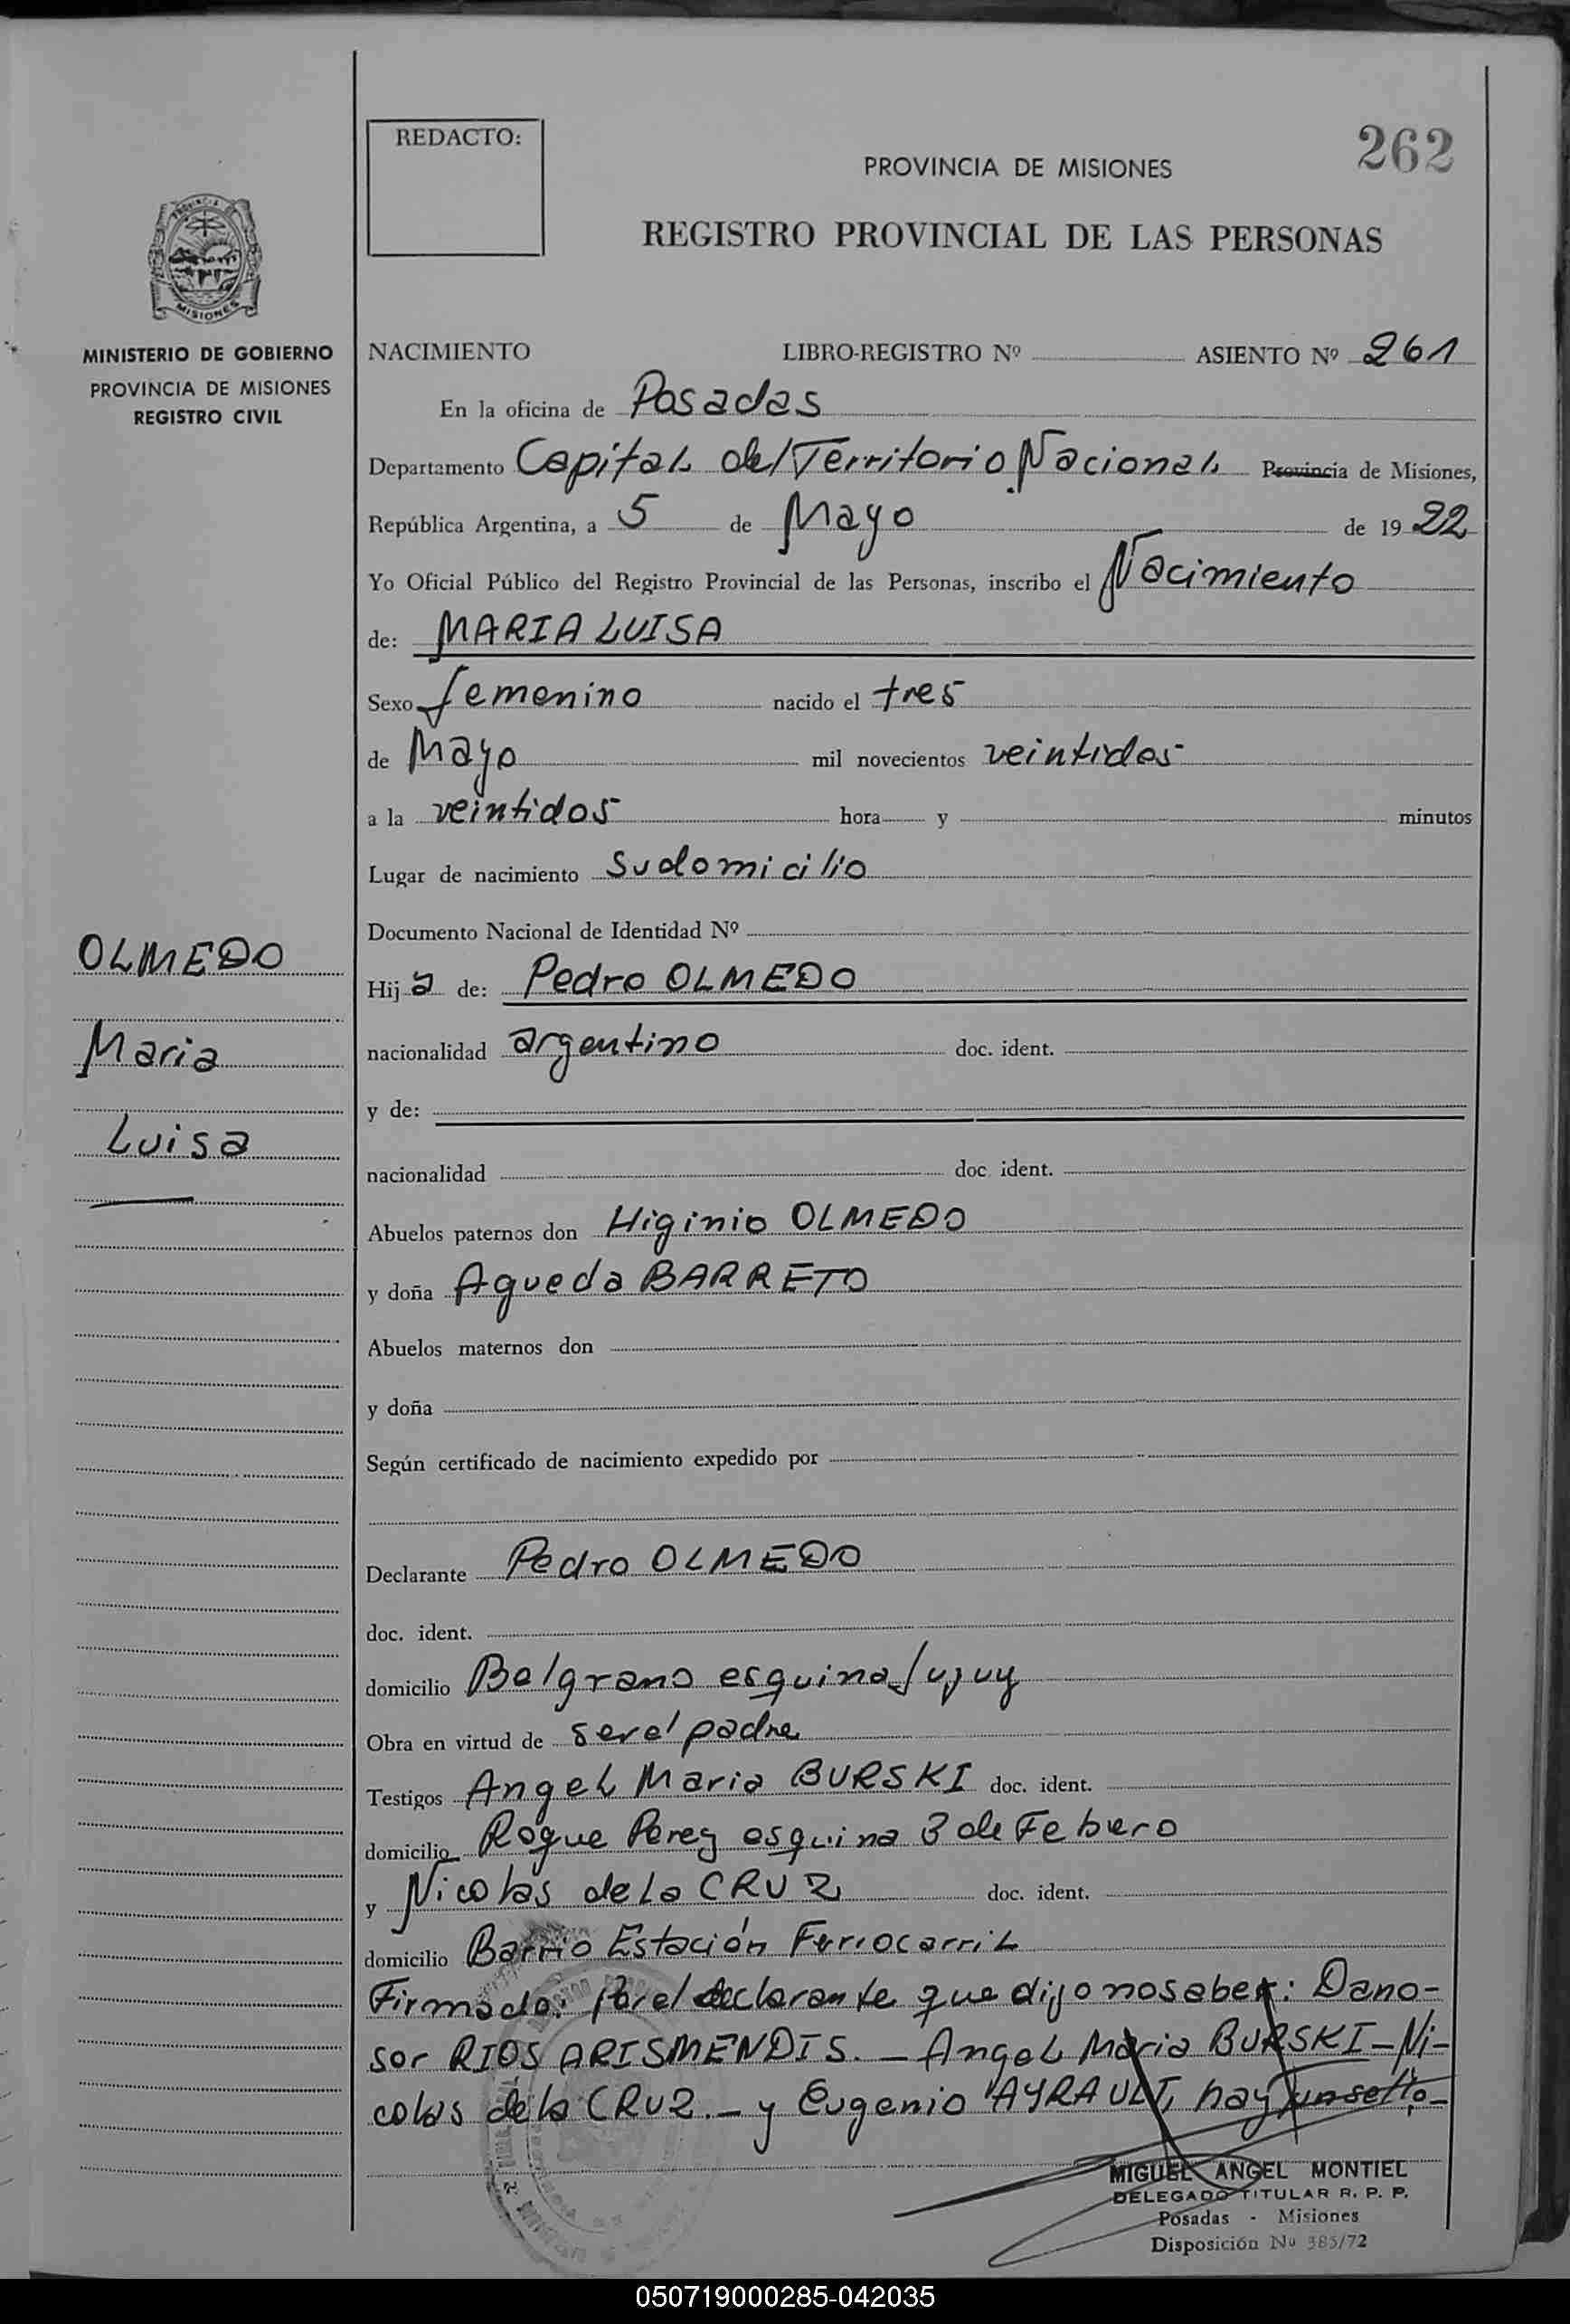 REDACTO:
262
PROVINCIA DE MISIONES
REGISTRO PROVINCIAL DE LAS PERSONAS
PROVINCIA DE
MISIONES
MINISTERIO DE GOBIERNO
PROVINCIA DE MISIONES
REGISTRO CIVIL
NACIMIENTO LIBRO-REGISTRO Nº ASIENTO Nº 261
En la oficina de Posadas
Departamento Capital del Territorio Nacional Provincia de Misiones,
República Argentina, a 5 de Mayo de 1922
Yo Oficial Público del Registro Provincial de las Personas, inscribo el Nacimiento
de: MARIA LUISA
Sexo femenino nacido el tres
de Mayo mil novecientos veintidos
a la veintidos hora y minutos
Lugar de nacimiento Su domicilio
Documento Nacional de Identidad Nº
OLMEDO
Maria
Luisa
Hija de: Pedro OLMEDO
nacionalidad argentino doc. ident.
y de:
nacionalidad doc. ident.
Abuelos paternos don Higinio OLMEDO
y doña Agueda BARRETO
Abuelos maternos don
y doña
Según certificado de nacimiento expedido por
Declarante Pedro OLMEDO
doc. ident.
domicilio Belgrano esquina Jujuy
Obra en virtud de ser el padre
Testigos Angel Maria BURSKI doc. ident.
domicilio Roque Perez esquina 3 de Febrero
y Nicolas de la CRUZ doc. ident.
domicilio Barrio Estación Ferrocarril
Firmado: Por el declarante que dijo no saber: Dano-
sor RIOS ARISMENDIS. _ Angel Maria BURSKI _ Ni-
colas de la CRUZ. _ y Eugenio AYRAULT, hay un sello._
MIGUEL ANGEL MONTIEL
DELEGADO TITULAR R. P. P.
Posadas - Misiones
Disposición Nº 385/72
050719000285-042035